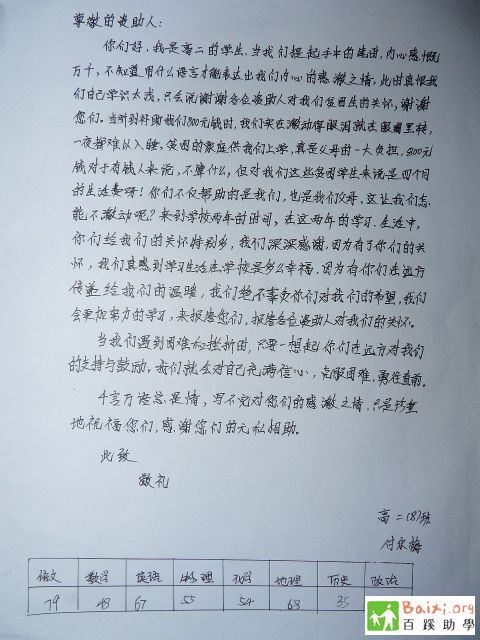 尊敬的资助人：
你们好，我是高二的学生，当我们提起手中的笔时，内心感慨
万千，不知道用什么语言才能表达出我们内心的感激之情，此时真恨我
们自己学识太浅，只会说谢谢各位资助人对我们贫困生的关怀，谢谢
您们。当听到补助我们800元钱时，我们实在激动得眼泪就在眼圈里转，
一夜都难以入睡。贫困的家庭供我们上学，真是父母的一大负担，800元
钱对于有钱人来说，不算什么，但对我们这些贫困学生来说是四个月
的生活费呀！你们不仅帮助的是我们，也是我们父母，这让我们怎
能不激动呢？来到学校两年的时间，在这两年的学习、生活中，
你们给我们的关怀特别多，我们深深感谢，因为有了你们的关
怀，我们真感到学习生活在学校是多么幸福，因为有你们在远方
传递给我们的温暖，我们绝不辜负你们对我们的希望，我们
会更加努力的学习，来报答您们，报答各位资助人对我们的关怀。
当我们遇到困难和挫折时，只要一想起你们在远方对我们
的支持与鼓励，我们就会对自己充满信心，克服困难，勇往直前。
千言万语总是情，写不完对您们的感激之情，只是珍重
地祝福您们，感谢您们的无私相助。
此致
敬礼
高二（8）班
付永梅
语文 数学 英语 物理 化学 地理 历史 政治
79 48 67 55 54 68 35
Baixi.org
百蹊助學